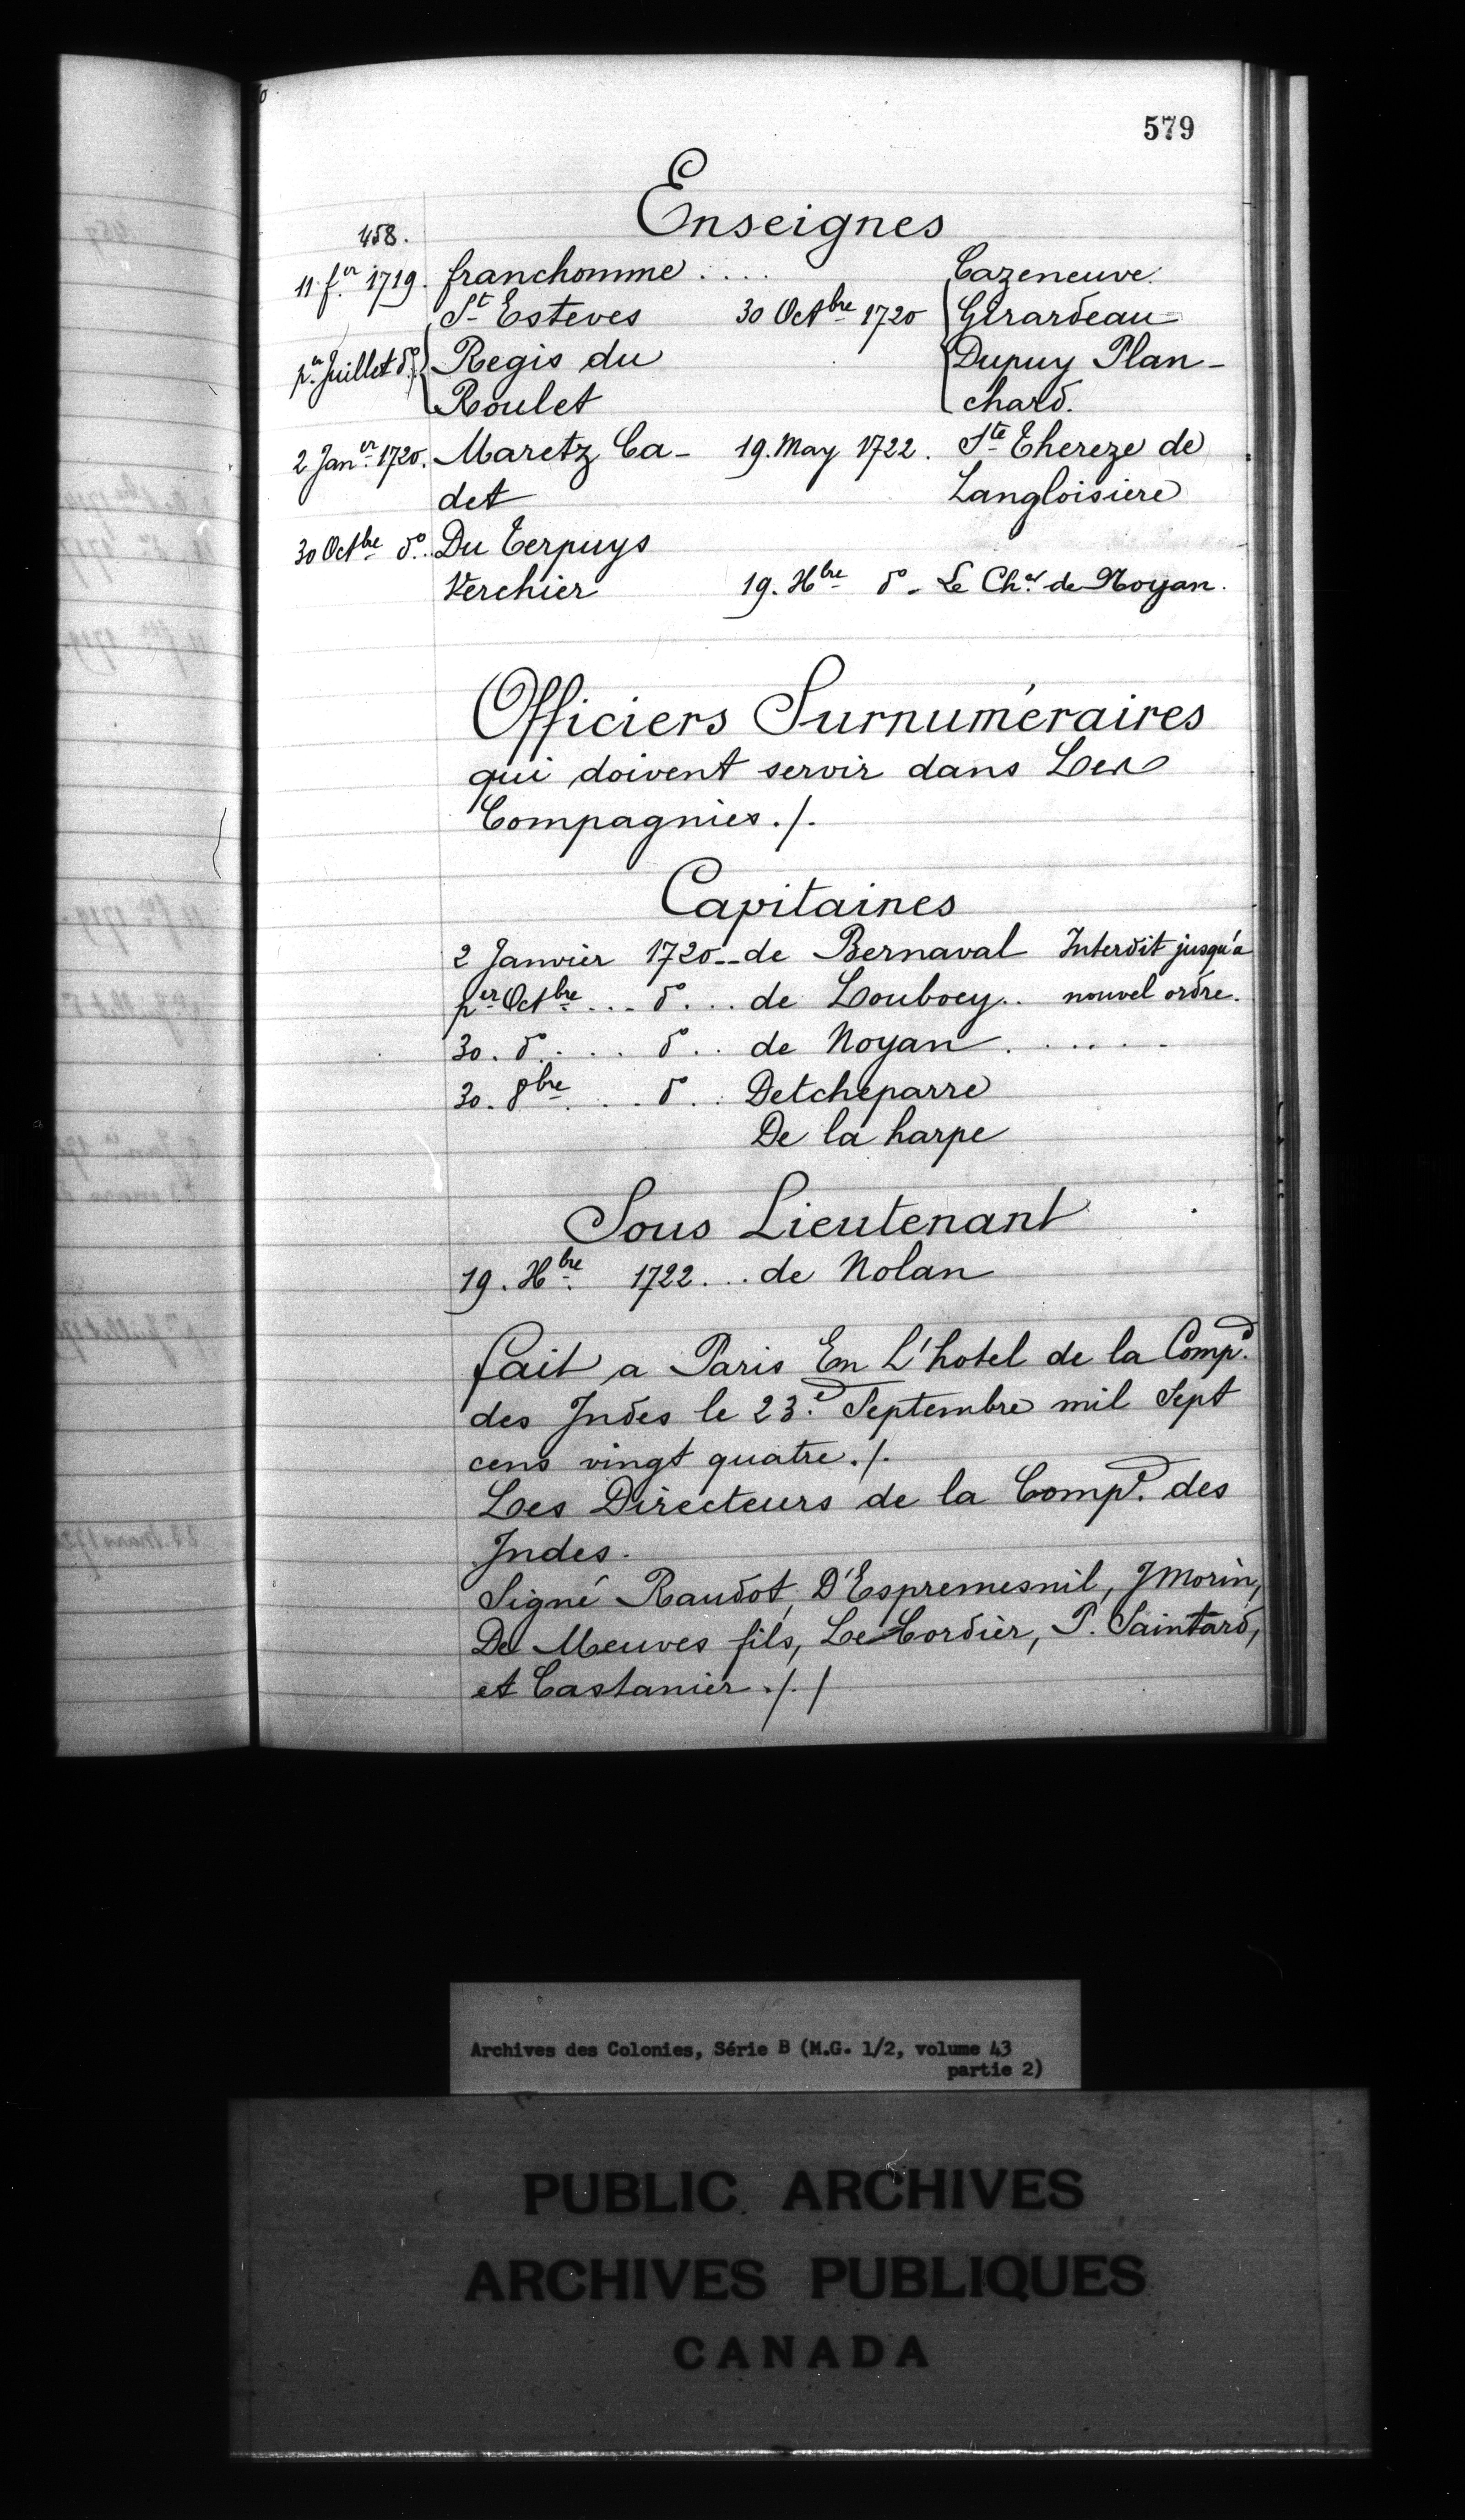 579
Enseignes
458.
11 f.er 1719. franchomme .... Cazeneuve.
St Esteves 30 Octbre 1720 Girardeau
p.er Juillet do. Regis du Dupuy Plan-
Roulet chard.
2 Jan.er 1720. Maretz Ca- 19. May 1722. Ste Thereze de
det Langloisiere
30 Octbre do. Du Terpuys
Verchier 19. Xbre do. Le Ch.er de Noyan.
Officiers Surnuméraires
qui doivent servir dans Les
Compagnies ./.
Capitaines
2 Janvier 1720 -- de Bernaval Interdit jusqu'a
p.er Octbre ... do ... de Louboey .. nouvel ordre.
30. do .... do .. de Noyan ......
30. 8bre .... do .. Detcheparre
De la harpe
Sous Lieutenant
19. Xbre. 1722 ... de Nolan
fait a Paris En L'hotel de la Comp.e
des Indes le 23.e Septembre mil Sept
cens vingt quatre ./.
Les Directeurs de la Comp.e des
Indes.
Signé Raudot, D'Espremesnil, J Morin,
De Meuves fils, Le Cordier, P. Saintard,
et Castanier ./. /
Archives des Colonies, Série B (M.G. 1/2, volume 43
partie 2)
PUBLIC ARCHIVES
ARCHIVES PUBLIQUES
CANADA